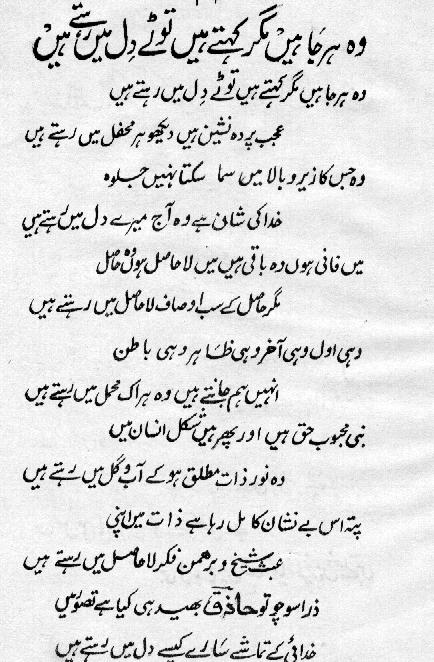 وہ ہر جا ہیں مگر کہتے ہیں ٹوٹے دل میں رہتے ہیں
وہ ہر جا ہیں مگر کہتے ہیں ٹوٹے دل میں رہتے ہیں
عجب پردہ نشین ہیں دیکھو ہر محفل میں رہتے ہیں
وہ جس کا زیر و بالا میں سما سکتا نہیں جلوہ
خدا کی شان ہے وہ آج میرے دل میں رہتے ہیں
میں فانی ہوں وہ باقی ہیں میں لاحاصل ہوں وہ حاصل
مگر حاصل کے سب اوصاف لاحاصل میں رہتے ہیں
وہی اول وہی آخر وہی ظاہر وہی باطن
انہیں ہم جانتے ہیں وہ ہر اک محمل میں رہتے ہیں
نبی محبوب حق ہیں اور پھر ہیں شکل انسان میں
وہ نور ذات مطلق ہو کے آب و گل میں رہتے ہیں
پتہ اس بے نشان کا مل رہا ہے ذات میں اپنی
عبث شیخ و برھمن فکر لاحاصل میں رہتے ہیں
ذرا سوچو تو حاذق بھید ہی کیا ہے تصور میں
خدائی کے تماشے سارے کیسے دل میں رہتے ہیں